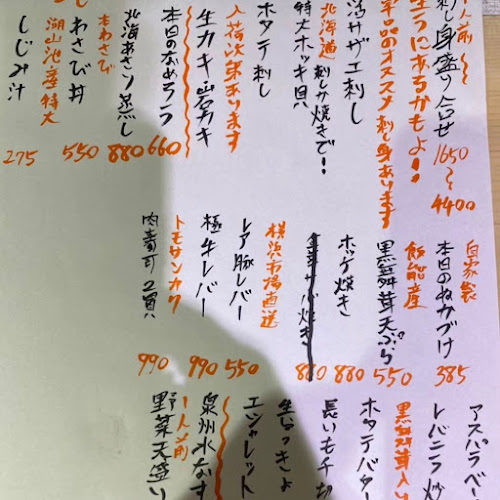 一人前
刺し身盛り合せ 1650〜4400
生うにあるかもよ!
単品のオススメ 刺し身あります
活サザエ刺し
北海道 刺しか焼きで!
特大ホッキ貝
ホタテ刺し
入荷次第あります
生カキ 岩カキ
本日のなめろう 660
北海あさり蒸し 880
本わさび
わさび丼 550
湖山池産特大
しじみ汁 275
自家製
本日のぬかづけ 385
飯能産
黒舞茸天ぷら 550
ホッケ焼き 880
サバ焼き 880
横浜市場直送
レア豚レバー 550
極牛レバー 990
トモサンカク
肉寿司 2貫 990
アスパラベー
レバニラ炒
黒舞茸入
ホタテバタ
長いも千切
生らっきょ
エシャレット
泉州水なす
一人前
野菜天盛い